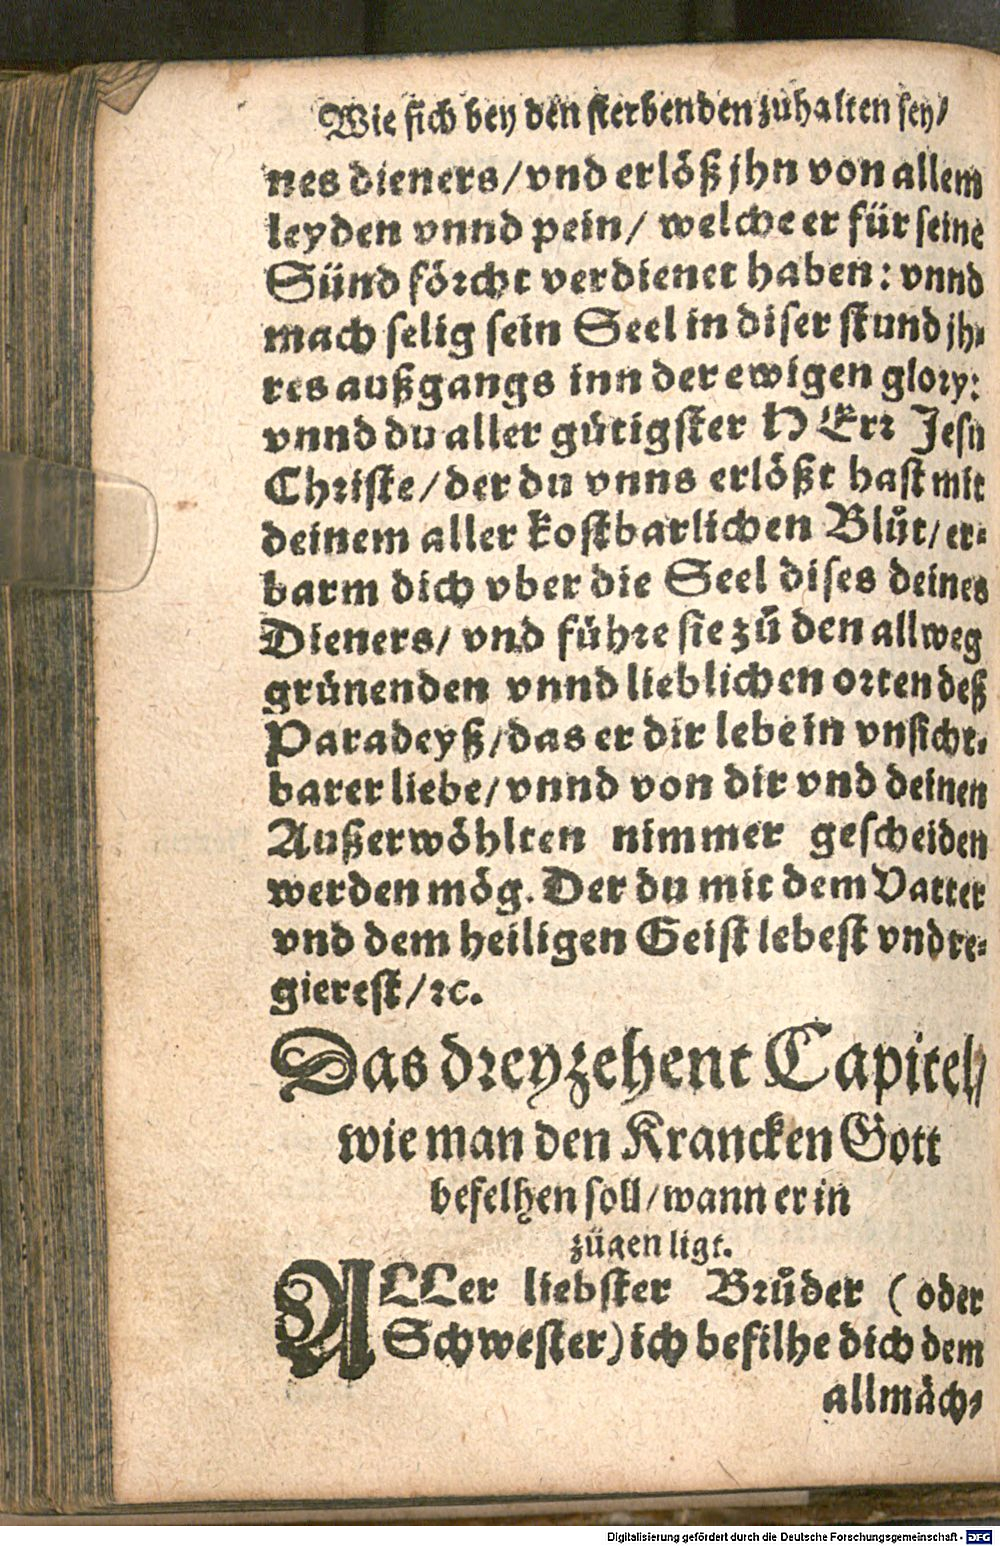 Wie sich bey den sterbenden zůhalten sey/
nes dieners/vnd erlöß jhn von allem
leyden vnnd pein/ welche er für seine
Sünd förcht verdienet haben: vnnd
mach selig sein Seel in diser stund jh-
res außgangs inn der ewigen glory:
vnnd du aller gütigster HErr Jesu
Christe/der du vnns erlößt hast mit
deinem aller kostbarlichen Blůt/er-
barm dich vber die Seel dises deines
Dieners/ vnd führe sie zů den allweg
grünenden vnnd lieblichen orten deß
Paradeyß/das er dir lebe in vnsicht-
barer liebe/vnnd von dir vnd deinen
Außerwöhlten nimmer gescheiden
werden mög. Der du mit dem Vatter
vnd dem heiligen Geist lebest vnd re-
gierest/ꝛc.
Das dreyzehent Capitel/
wie man den Krancken Gott
befelhen soll/wann er in
zügen ligt.
ALLer liebster Brůder (oder
Schwester) ich befilhe dich dem
allmäch-
Digitalisierung gefördert durch die Deutsche Forschungsgemeinschaft - DFG